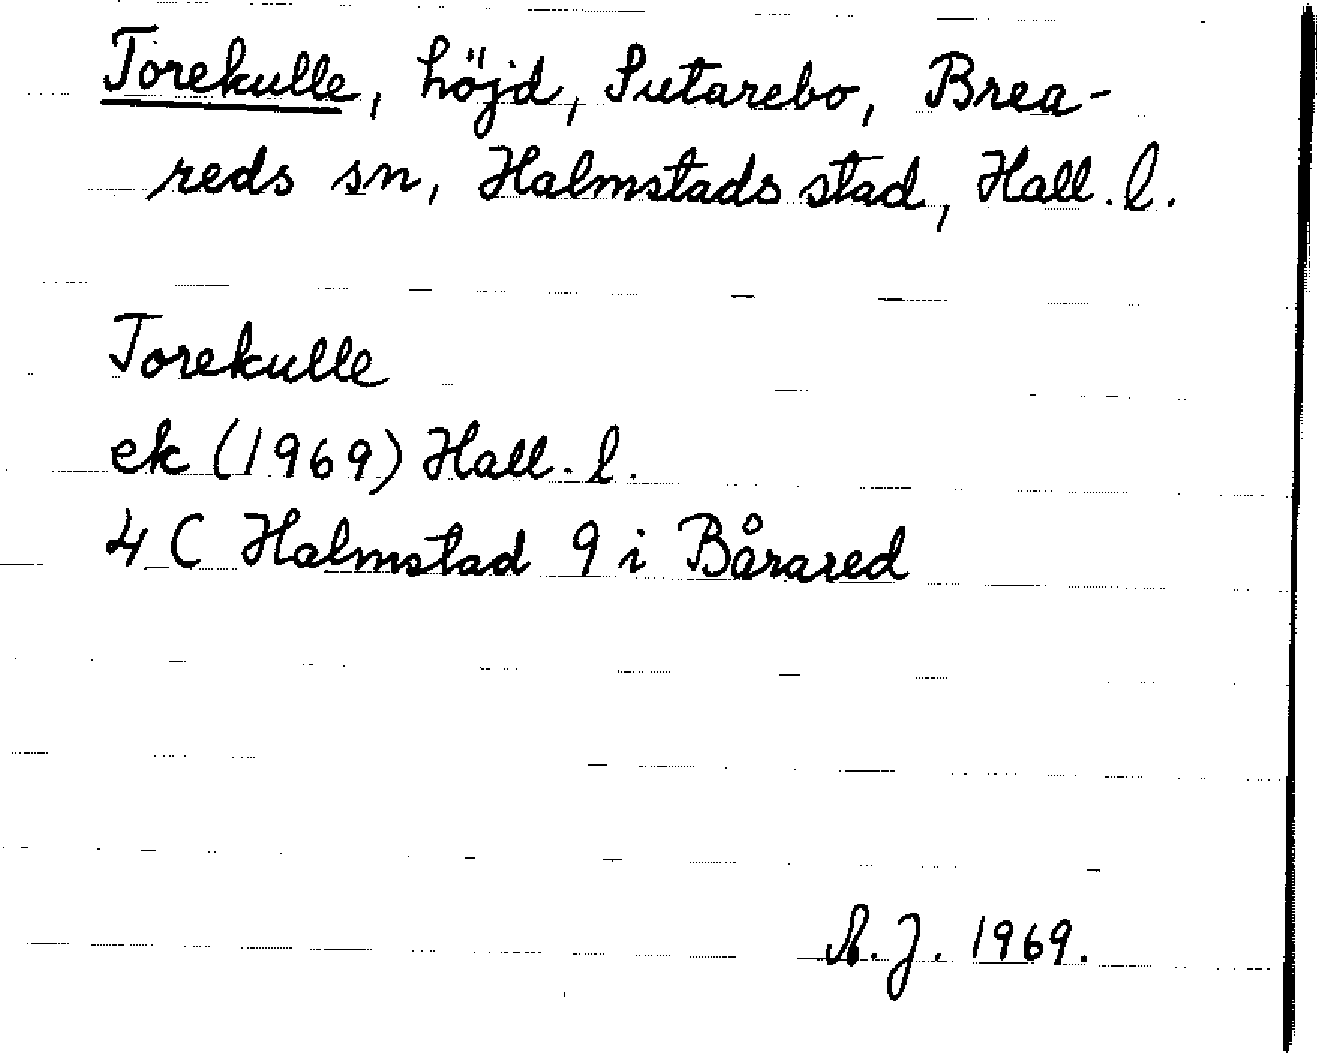 Torekulle, höjd, Sutarebo, Brea-
reds sn, Halmstads stad, Hall. l.
Torekulle
ek (1969) Hall. l.
4 C Halmstad 9 i Bårared
A. J. 1969.